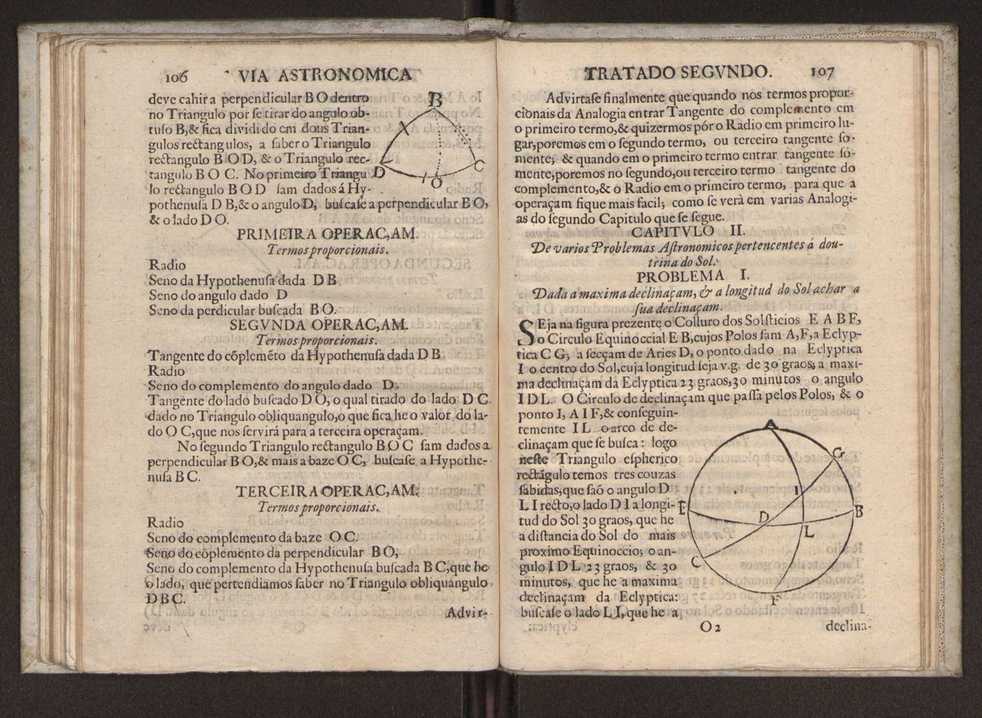 106 VIA ASTRONOMICA
deve cahir a perpendicular B O dentro
no Triangulo por se tirar do angulo ob-
tuso B, & fica dividido em dous Trian-
gulos rectangulos, a saber o Triangulo
rectangulo B O D, & o Triangulo rec-
tangulo B O C. No primeiro Triangu
lo rectangulo B O D sam dados á Hy-
pothenusa D B, & o angulo D, buscase a perpendicular B O,
& o lado D O.
B
D
C
I O
PRIMEIRA OPERAC,AM.
Termos proporcionais.
Radio
Seno da Hypothenusa dada D B
Seno do angulo dado D
Seno da perdicular buscada B O.
SEGVNDA OPERAC,AM.
Termos proporcionais.
Tangente do cõplemẽto da Hypothenusa dada D B
Radio
Seno do complemento do angulo dado D.
Tangente do lado buscado D O, o qual tirado do lado D C
dado no Triangulo obliquangulo, o que fica he o valor do la-
do O C, que nos servirá para a terceira operaçam.
No segundo Triangulo rectangulo B O C sam dados a
perpendicular B O, & mais a baze O C, buscase a Hypothe-
nusa B C.
TERCEIRA OPERAC,AM.
Termos proporcionais.
Radio
Seno do complemento da baze O C.
Seno do cõplemento da perpendicular B O,
Seno do complemento da Hypothenusa buscada B C, que he
o lado, que pertendiamos saber no Triangulo obliquangulo
D B C.
Advir-
TRATADO SEGVNDO. 107
Advirtase finalmente que quando nos termos propor-
cionais da Analogia entrar Tangente do complemento em
o primeiro termo, & quizermos pór o Radio em primeiro lu-
gar, poremos em o segundo termo, ou terceiro tangente so-
mente, & quando em o primeiro termo entrar tangente só-
mente, poremos no segundo, ou terceiro termo tangente do
complemento, & o Radio em o primeiro termo, para que a
operaçam fique mais facil; como se verà em varias Analogi-
as do segundo Capitulo que se segue.
CAPITVLO II.
De varios Problemas Astronomicos pertencentes á dou-
trina do Sol.
PROBLEMA I.
Dada a maxima declinaçam, & a longitud do Sol achar a
sua declinaçam.
SEja na figura prezente o Colluro dos Solsticios E A B F,
o Circulo Equinoccial E B, cujos Polos sam A, F, a Eclyp-
tica C G, a secçam de Aries D, o ponto dado na Eclyptica
I o centro do Sol, cuja longitud seja v.g. de 30 graos, a maxi-
ma declinaçam da Eclyptica 23 graos, 30 minutos o angulo
I D L. O Circulo de declinaçam que passa pelos Polos, & o
ponto I, A I F, & conseguin-
temente I L o arco de de-
clinaçam que se busca: logo
neste Triangulo espherico
rectãgulo temos tres couzas
sabidas, que saõ o angulo D
L I recto, o lado D I a longi-
tud do Sol 30 graos, que he
a distancia do Sol do mais
proximo Equinoccio, o an-
gulo I D L 23 graos, & 30
minutos, que he a maxima
declinaçam da Eclyptica:
buscase o lado L I, que he a
A
G
I
E
B
D
L
C
F
O 2 declina-